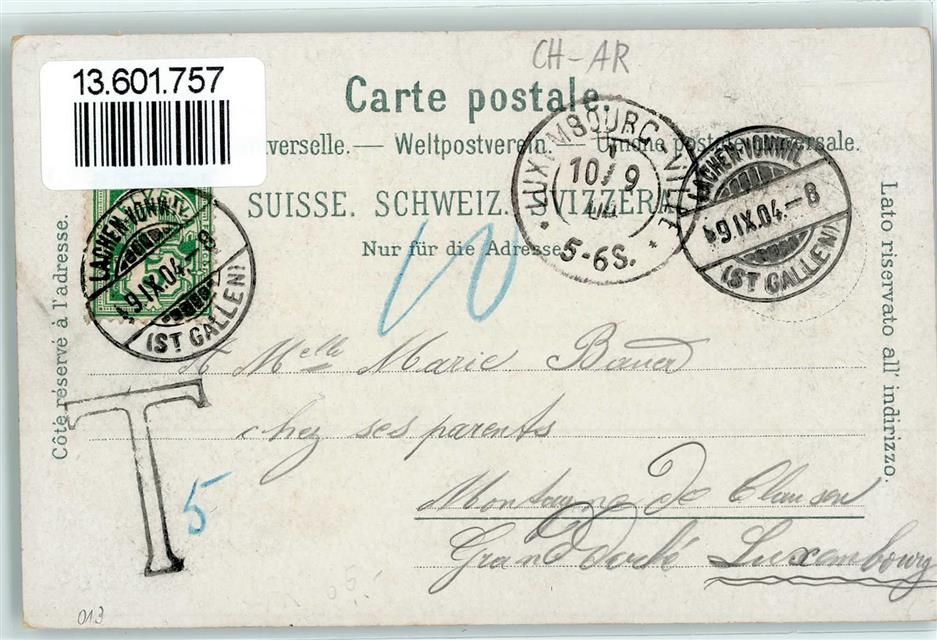 CH-AR
13.601.757
Carte postale.
iverselle. — Weltpostverein. — Unione postale universale.
SUISSE. SCHWEIZ. SVIZZERA.
Nur für die Adresse.
Côté réservé à l'adresse.
Lato riservato all' indirizzo.
LUXEMBOURG-VILLE
10/9
04
5-6S.
LACHEN-VONWIL
9.IX.04.-8
(ST GALLEN)
LACHEN-VONWIL
9.IX.04.-8
(ST GALLEN)
5
10
A Melle Marie Bauer
chez ses parents
Montagne de Clausen
Grand duché Luxembourg
T
5
013